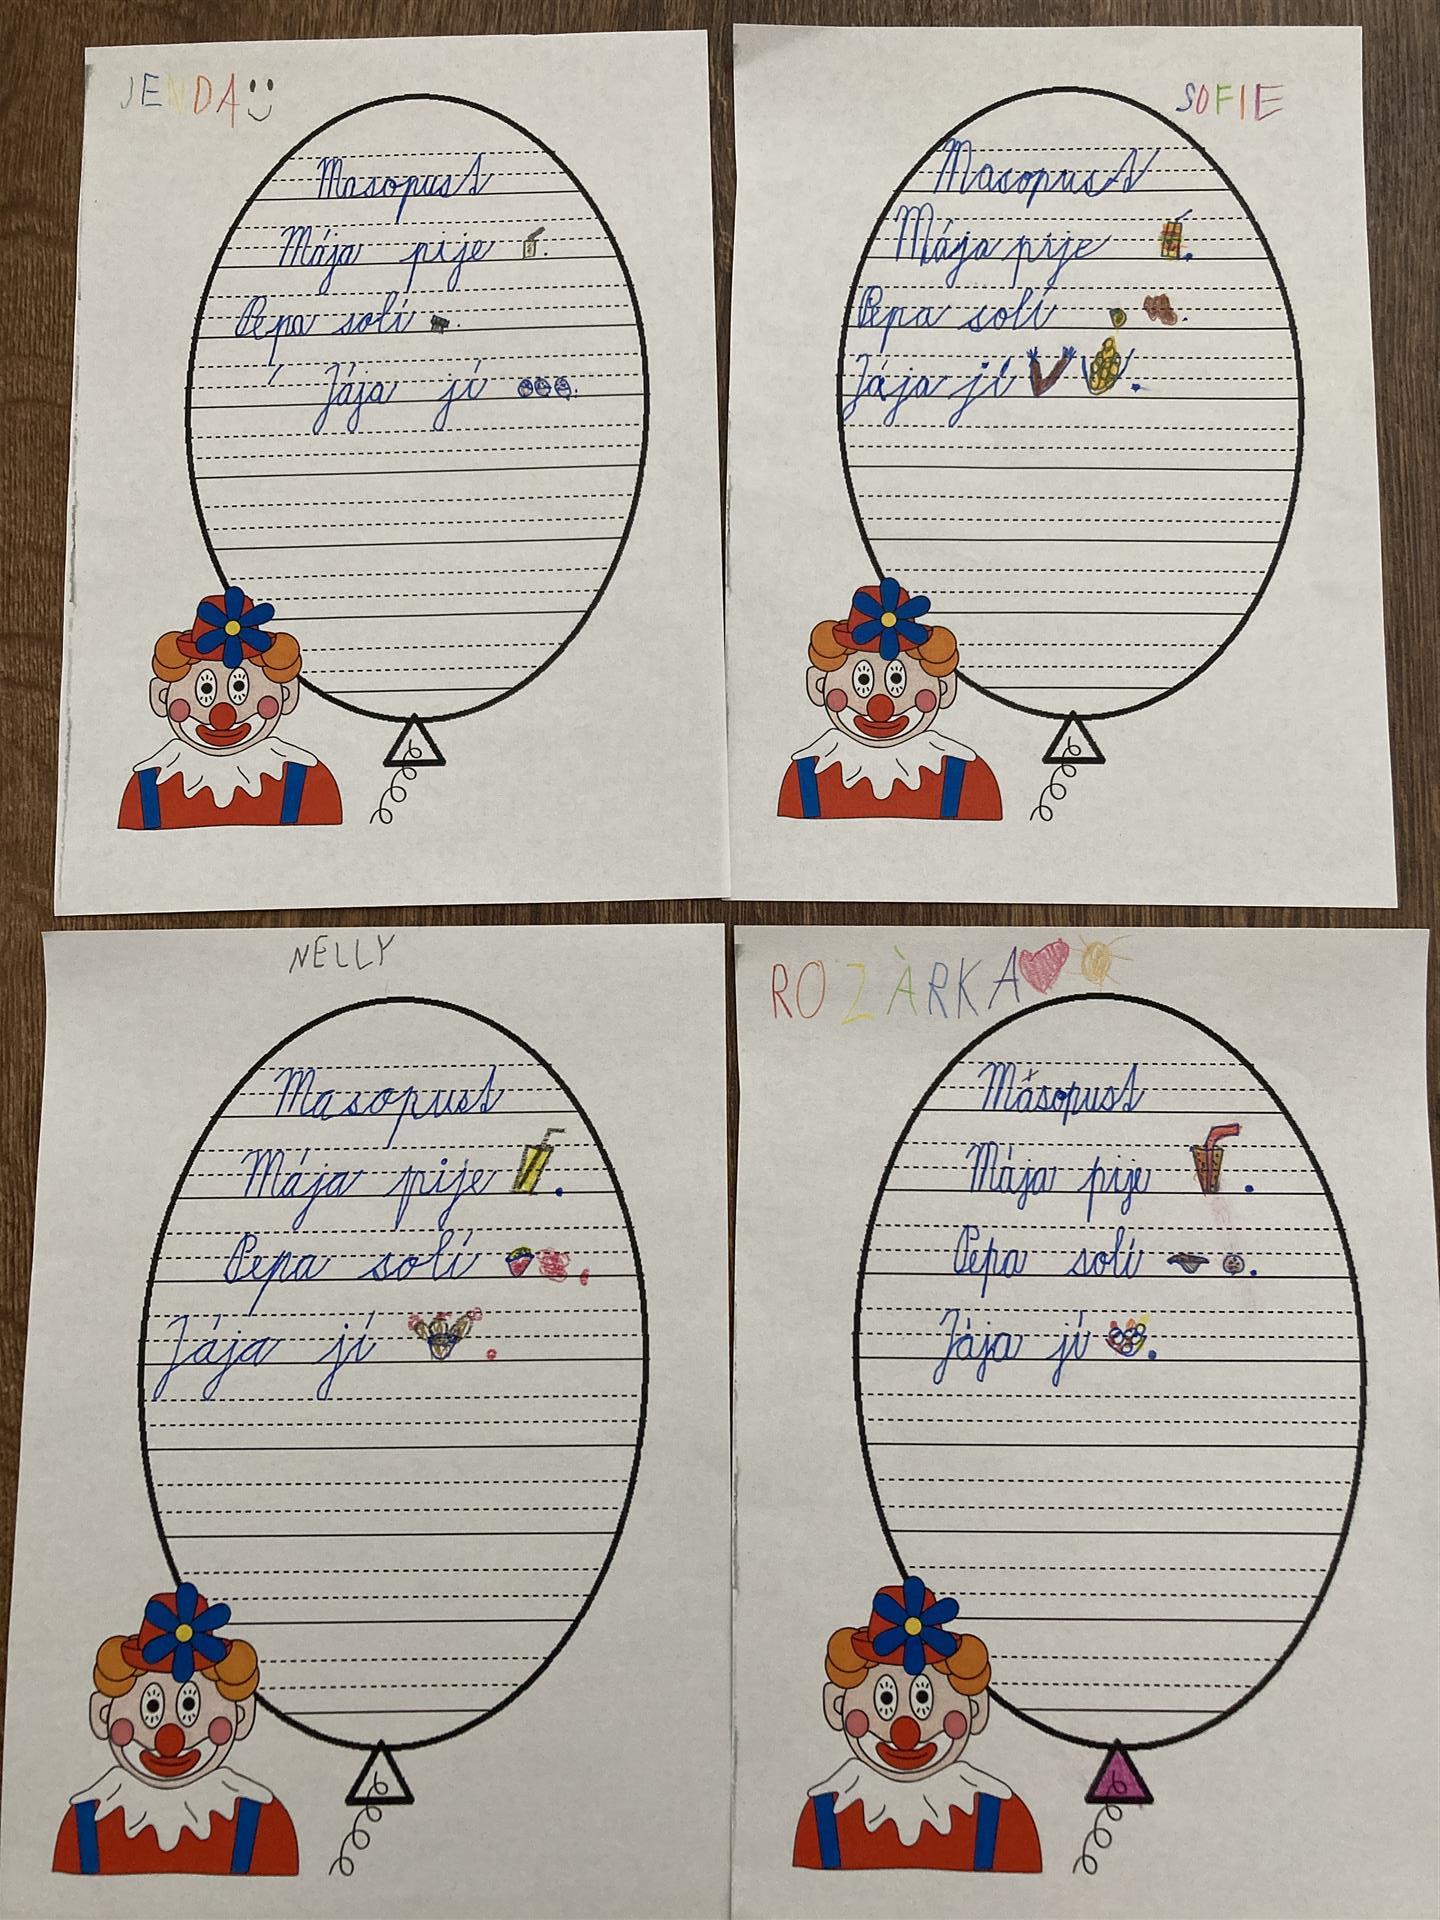 JENDA
Masopust
Mája pije .
Pepa solí .
Jája jí .
SOFIE
Masopust
Mája pije .
Pepa solí .
Jája jí .
NELLY
Masopust
Mája pije .
Pepa solí .
Jája jí .
ROZÀRKA
Másopust
Mája pije .
Pepa solí .
Jája jí .